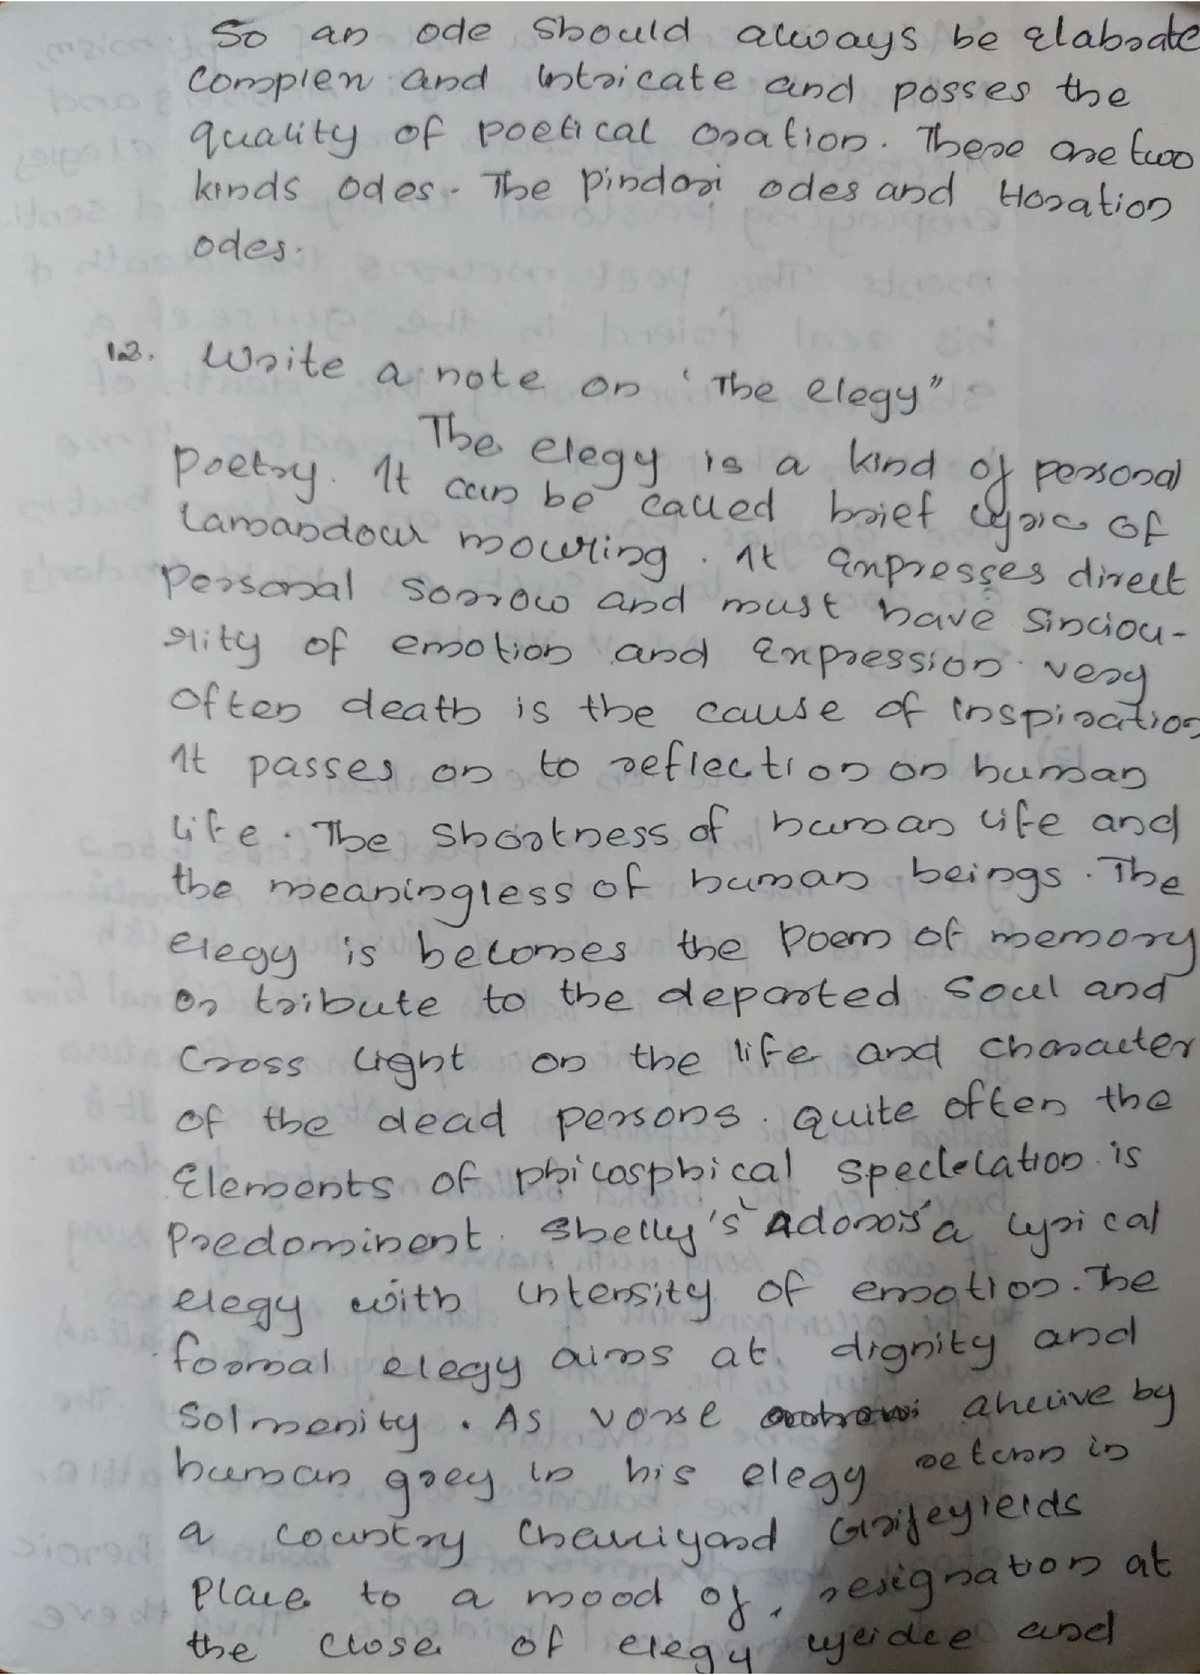 So an ode should always be Elaborate
Complex and intricate and posses the
quality of poetical oration. There are two
kinds odes. The Pindari odes and Horation
odes.
12. Write a note on 'The elegy"
The elegy is a kind of personal
Poetry. It can be called brief lyric of
mouring. It Expresses direct
Personal Sorrow and must have
of emotion and Expression very
often death is the cause of inspiration
It passes on to reflection on human
life. The Shortness of human life and
the meaningless of human beings. The
elegy is becomes the Poem of memory
or tribute to the departed Soul and
Cross light on the life and character
of the dead persons. Quite often the
Elements of philosphical is
Predominent. Shelly's 'Adonois' a lyrical
elegy with intensity of emotion. The
formal elegy aims at dignity and
Solmenity. As verse by
human grey in his elegy retern in
a country
Place to a mood of, resignation at
the close of elegy and